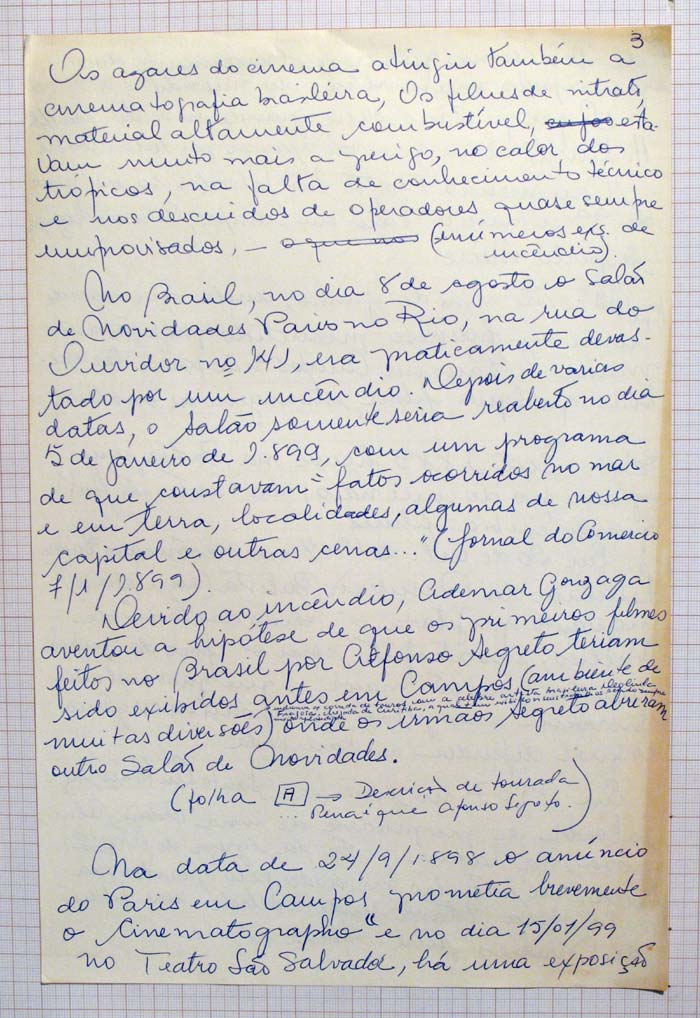 3
Os azares do cinema atingiu também a
cinematografia brasileira, Os filmes de nitrato,
material altamente combustível, esta-
vam muito mais a perigo, no calor dos
trópicos, na falta de conhecimento técnico
e nos descuidos de operadores quase sempre
improvisados, — (inúmeros exs. de
incêndio).
No Brasil, no dia 8 de agosto o Salão
de Novidades Paris no Rio, na rua do
Ouvidor nº 141, era praticamente devas-
tado por um incêndio. Depois de varias
datas, o Salão somente seria reaberto no dia
5 de janeiro de 1.899, com um programa
de que constavam "fatos ocorridos no mar
e em terra, localidades, algumas de nossa
capital e outras cenas..." (Jornal do Comercio
7/1/1.899).
Devido ao incêndio, Ademar Gonzaga
aventou a hipótese de que os primeiros filmes
feitos no Brasil por Alfonso Segreto teriam
sido exibidos antes em Campos (ambiente de
muitas diversões) onde os irmãos Segreto abriram
outro Salão de Novidades.
(folha A → Descrição de tourada
... Pena é que Afonso Segreto.)
Na data de 24/9/1.898 o anúncio
do Paris em Campos prometia brevemente
o Cinematographo" e no dia 15/01/99
no Teatro São Salvador, há uma exposição